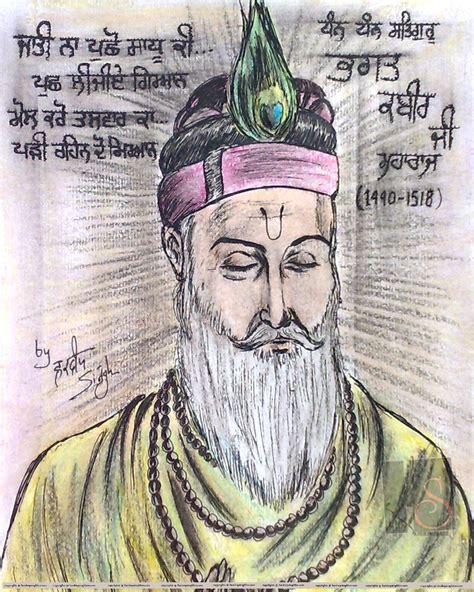 ਜਾਤੀ ਨਾ ਪੁਛੋ ਸਾਧੂ ਕੀ...
ਪੁਛ ਲੀਜੀਏ ਗਿਆਨ
ਮੋਲ ਕਰੋ ਤਲਵਾਰ ਕਾ...
ਪੜੀ ਰਹਿਨ ਦੋ ਮਿਆਨ
ਧੰਨ ਧੰਨ ਸਤਿਗੁਰੂ
ਭਗਤ
ਕਬੀਰ
ਜੀ
ਮਹਾਰਾਜ
(1440-1518)
by
Singh
S